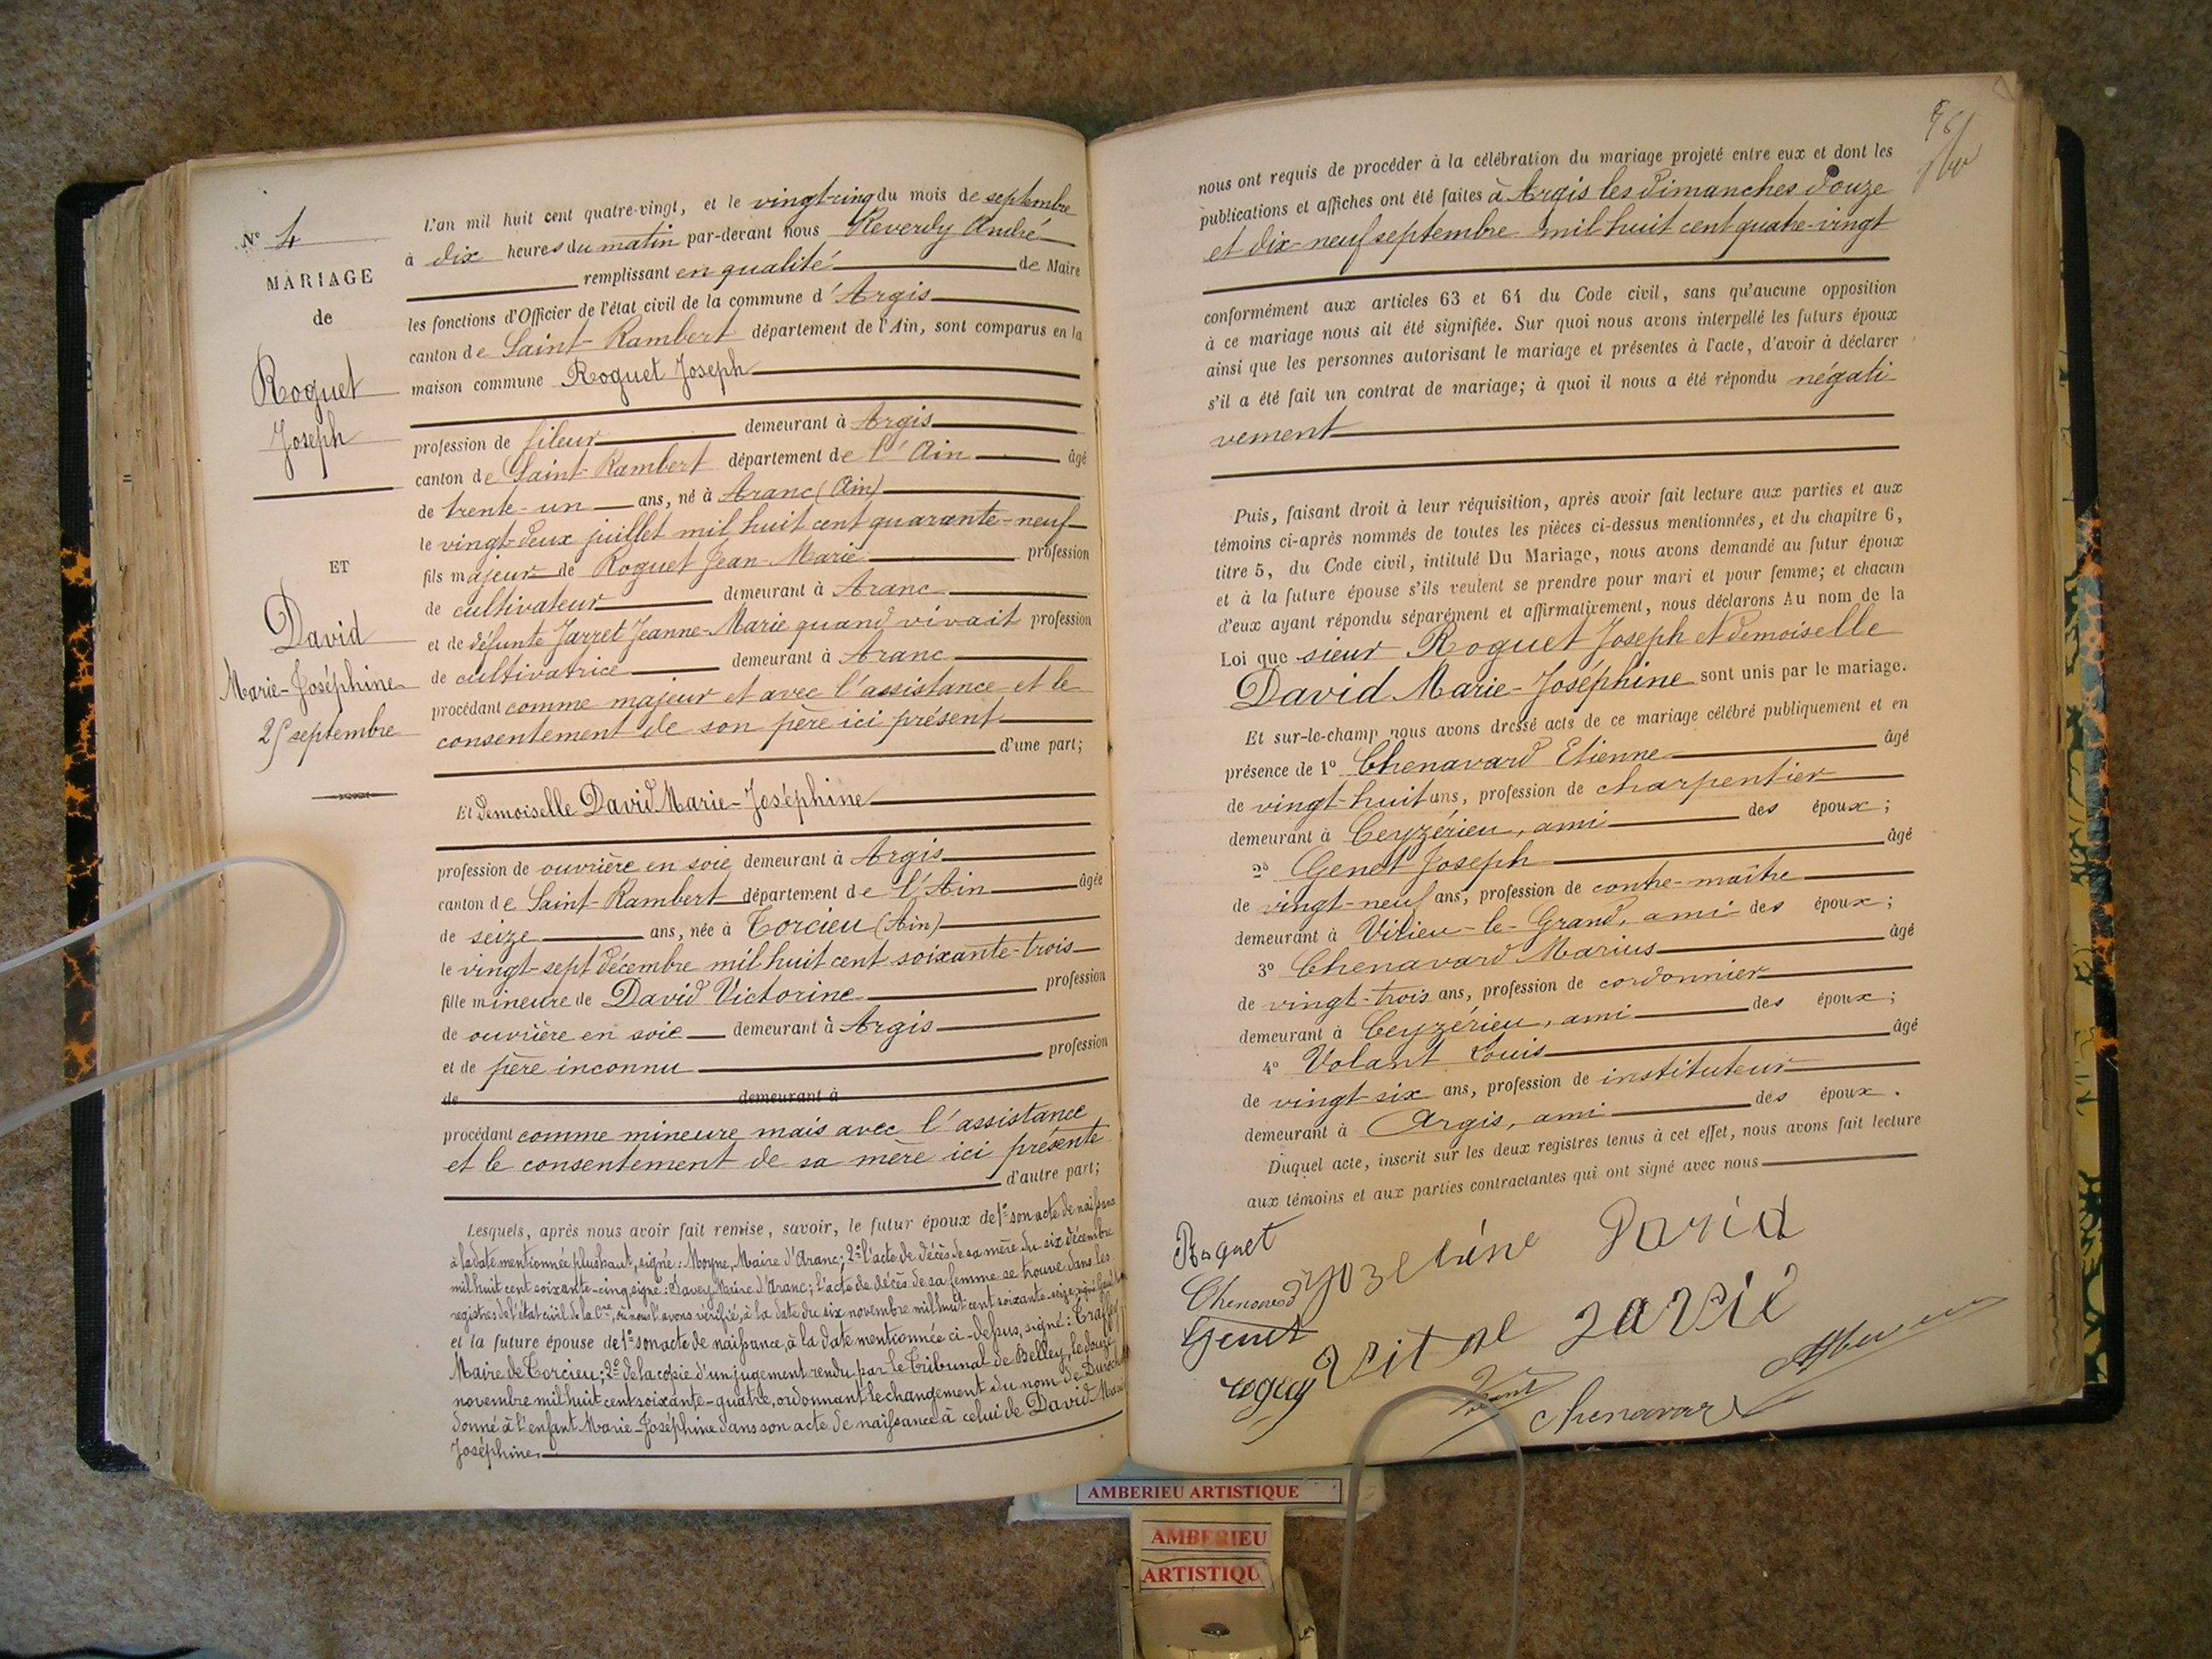 N° 4
MARIAGE
de
Roguet
Joseph
ET
David
Marie-Joséphine
25 septembre
L'an mil huit cent quatre-vingt, et le vingt-cinq du mois de septembre
à dix heures du matin par-devant nous Reverdy André
remplissant en qualité de Maire
les fonctions d'Officier de l'état civil de la commune d'Argis
canton de Saint-Rambert département de l'Ain, sont comparus en la
maison commune Roguet Joseph
profession de fileur demeurant à Argis
canton de Saint-Rambert département de l'Ain âgé
de trente-un ans, né à Aranc (Ain)
le vingt-deux juillet mil huit cent quarante-neuf
fils majeur de Roguet Jean-Marie profession
de cultivateur demeurant à Aranc
et de défunte Jarret Jeanne-Marie quand vivait profession
de cultivatrice demeurant à Aranc
procédant comme majeur et avec l'assistance et le
consentement de son père ici présent
d'une part;
Et demoiselle David Marie-Joséphine
profession de ouvrière en soie demeurant à Argis
canton de Saint-Rambert département de l'Ain âgée
de seize ans, née à Torcieu (Ain)
le vingt-sept décembre mil huit cent soixante-trois
fille mineure de David Victorine profession
de ouvrière en soie demeurant à Argis
et de père inconnu profession
de demeurant à
procédant comme mineure mais avec l'assistance
et le consentement de sa mère ici présente
d'autre part;
Lesquels, après nous avoir fait remise, savoir, le futur époux de 1° son acte de naissance
à la date mentionnée plus haut, signé: Moyne, Maire d'Aranc; 2° l'acte de décès de sa mère du six décembre
mil huit cent soixante-cinq, signé: Savey Maire d'Aranc; l'acte de décès de sa femme se trouve dans les
registres de l'état civil de la Cne, où nous l'avons vérifié, à la date du six novembre mil huit cent soixante-seize, signé
et la future épouse de 1° son acte de naissance, à la date mentionnée ci-dessus, signé:
Maire de Torcieu; 2° de la copie d'un jugement rendu par le Tribunal de Belley, le douze
novembre mil huit cent soixante-quatre, ordonnant le changement du nom de
donné à l'enfant Marie-Joséphine dans son acte de naissance à celui de David Marie
Joséphine.
nous ont requis de procéder à la célébration du mariage projeté entre eux et dont les
publications et affiches ont été faites à Argis les dimanches douze
et dix-neuf septembre mil huit cent quatre-vingt
conformément aux articles 63 et 64 du Code civil, sans qu'aucune opposition
à ce mariage nous ait été signifiée. Sur quoi nous avons interpellé les futurs époux
ainsi que les personnes autorisant le mariage et présentes à l'acte, d'avoir à déclarer
s'il a été fait un contrat de mariage; à quoi il nous a été répondu négati
vement
Puis, faisant droit à leur réquisition, après avoir fait lecture aux parties et aux
témoins ci-après nommés de toutes les pièces ci-dessus mentionnées, et du chapitre 6,
titre 5, du Code civil, intitulé Du Mariage, nous avons demandé au futur époux
et à la future épouse s'ils veulent se prendre pour mari et pour femme; et chacun
d'eux ayant répondu séparément et affirmativement, nous déclarons Au nom de la
Loi que sieur Roguet Joseph et demoiselle
David Marie-Joséphine sont unis par le mariage.
Et sur-le-champ nous avons dressé acte de ce mariage célébré publiquement et en
présence de 1° Chenavard Etienne âgé
de vingt-huit ans, profession de charpentier
demeurant à Ceyzérieu, ami des époux;
2° Genet Joseph âgé
de vingt-neuf ans, profession de contre-maître
demeurant à Virieu-le-Grand, ami des époux;
3° Chenavard Marius âgé
de vingt-trois ans, profession de cordonnier
demeurant à Ceyzérieu, ami des époux;
4° Volant Louis âgé
de vingt-six ans, profession de instituteur
demeurant à Argis, ami des époux.
Duquel acte, inscrit sur les deux registres tenus à cet effet, nous avons fait lecture
aux témoins et aux parties contractantes qui ont signé avec nous
Roguet
David
Genet
AMBERIEU ARTISTIQUE
AMBERIEU
ARTISTIQU